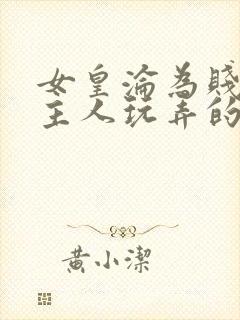 女皇淪為賤
主人玩弄的
黃小潔